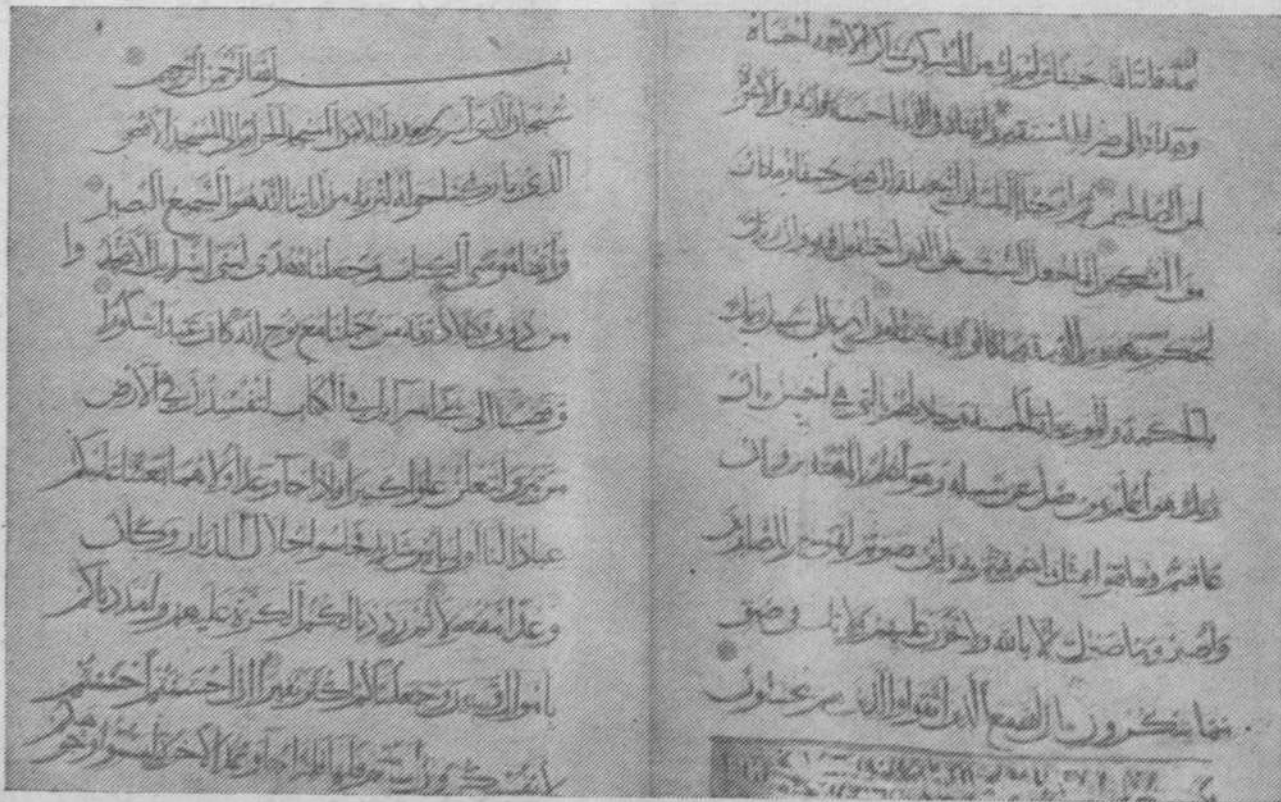 أمة قانتا لله حنيفا ولم يك من المشركين شاكرا لأنعمه اجتباه
وهداه إلى صراط مستقيم وآتيناه في الدنيا حسنة وإنه في الآخرة
لمن الصالحين ثم أوحينا إليك أن اتبع ملة إبرهيم حنيفا وما كان
من المشركين إنما جعل السبت على الذين اختلفوا فيه وإن ربك
ليحكم بينهم يوم القيمة فيما كانوا فيه يختلفون ادع إلى سبيل ربك
بالحكمة والموعظة الحسنة وجادلهم بالتي هي أحسن إن
ربك هو أعلم بمن ضل عن سبيله وهو أعلم بالمهتدين وإن
عاقبتم فعاقبوا بمثل ما عوقبتم به ولئن صبرتم لهو خير للصابرين
واصبر وما صبرك إلا بالله ولا تحزن عليهم ولا تك في ضيق
مما يمكرون إن الله مع الذين اتقوا والذين هم محسنون
بسم الله الرحمن الرحيم
سبحان الذي أسرى بعبده ليلا من المسجد الحرام إلى المسجد الأقصى
الذي باركنا حوله لنريه من آياتنا إنه هو السميع البصير
وآتينا موسى الكتاب وجعلناه هدى لبني إسرائيل ألا تتخذوا
من دوني وكيلا ذرية من حملنا مع نوح إنه كان عبدا شكورا
وقضينا إلى بني إسرائيل في الكتاب لتفسدن في الأرض
مرتين ولتعلن علوا كبيرا فإذا جاء وعد أولاهما بعثنا عليكم
عبادا لنا أولي بأس شديد فجاسوا خلال الديار وكان
وعدا مفعولا ثم رددنا لكم الكرة عليهم وأمددناكم
بأموال وبنين وجعلناكم أكثر نفيرا إن أحسنتم أحسنتم
لأنفسكم وإن أسأتم فلها فإذا جاء وعد الآخرة ليسوءوا وجوهكم